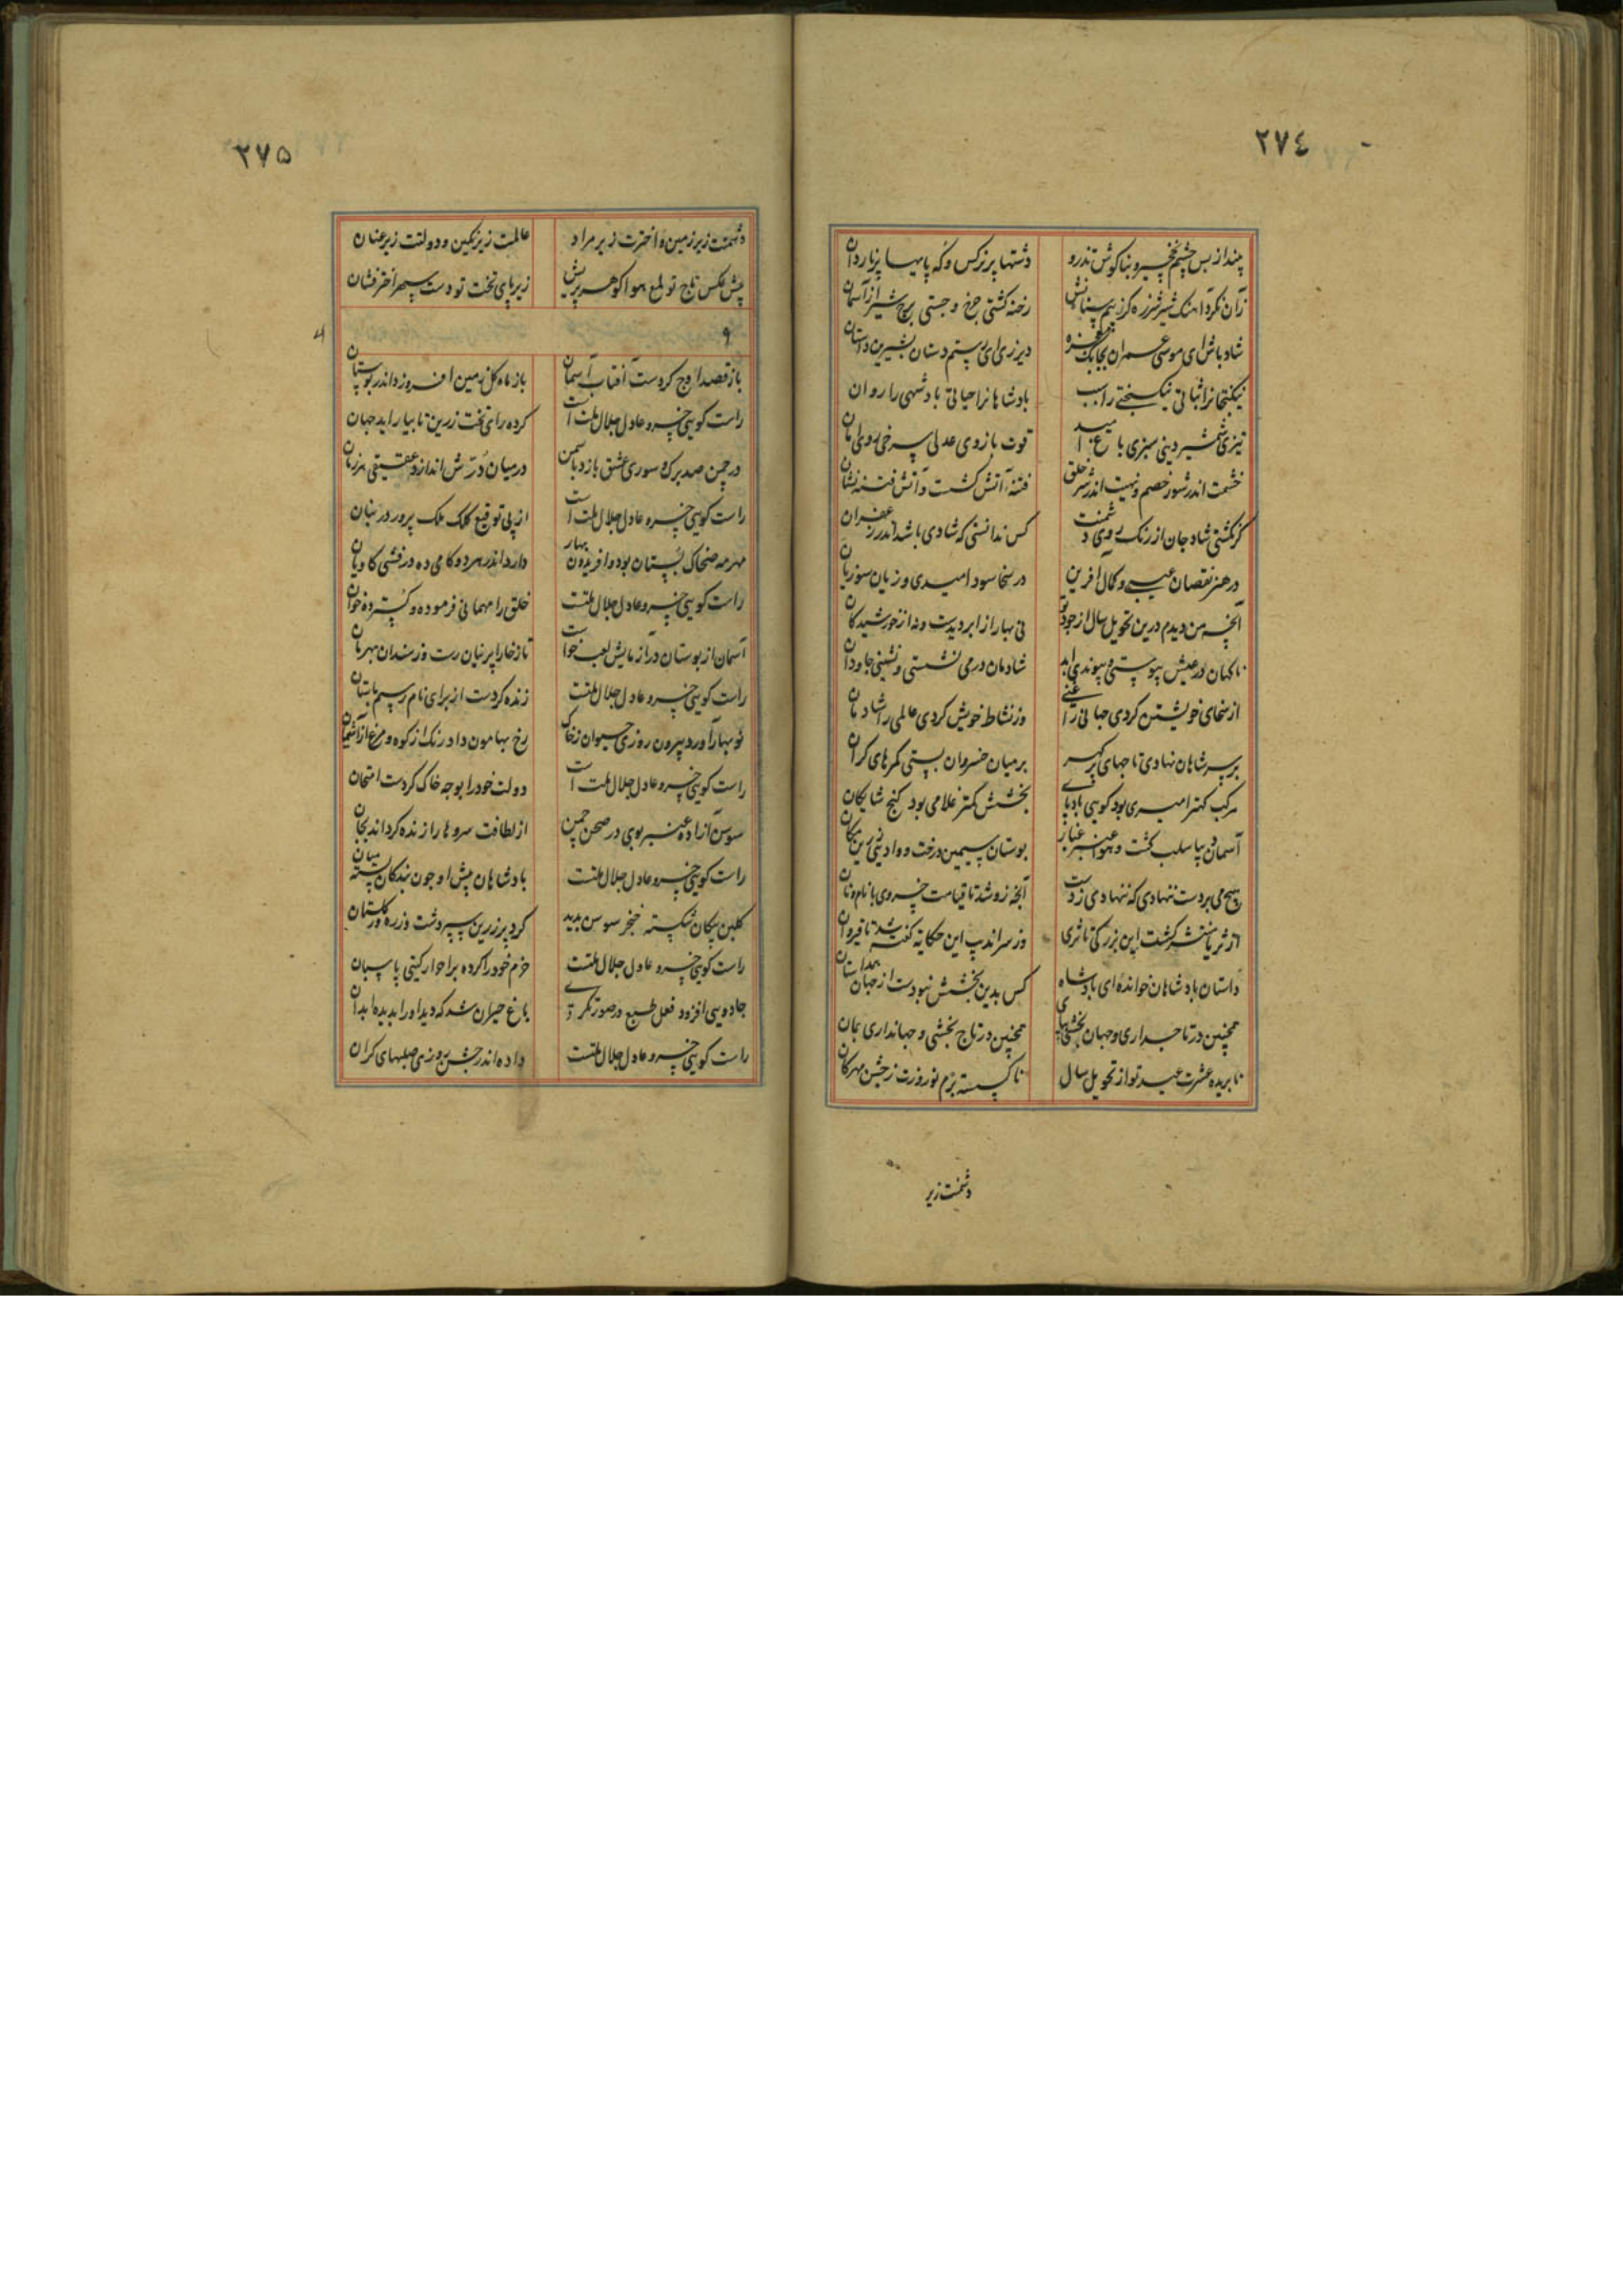 ٢٧٤
بیند از بس چشم نخچیر و بناکوش تذرو دشتها پر نرکس و که پایها پر ناردان
زان نکرد آهنک شیر شرزه کز بیم رخنه کشتی چرخ و جستی برج شیر از آسمان
شاد باش ای موسی عمران دیر زی ای رستم دستان بشیرین داستان
نیکبختانرا ثباتی نیکبختی را سبب بادشاهانرا حیاتی بادشهی را روان
تیزی شمشیر دینی سبزی باغ امید قوت بازوی عدلی سرخی روی امان
خشمت اندر شور خصم و نهیت اندر شر خلق فتنه آتش کشت و آتش فتنه نشان
کر نکشتی شاد جان از رنک روی دشمنت کس ندانستی که شادی باشد اندر زعفران
در هنر نقصان عیب و کمال آفرین در سخا سود امیدی و زیان سوزیان
آنچه من دیدم درین تحویل سال از جود تو نی بهار از ابر دیدست و نه از خورشید کان
ناکهان در عیش پیوستی و پیوندی ابد شادمان در می نشستی و نشینی جاودان
از سخای خویشتن کردی جهانی را غنی وز نشاط خویش کردی عالمی را شادمان
بر سر شاهان نهادی تاجهای بر میان خسروان بستی کمرهای کران
مرکب کمتر امیری بود کویی بادپای بخشش کمتر غلامی بود کنج شایکان
آسمان دیبا سلب کشت و هوا عنبر غبار بوستان سیمین درخت و وادی زرین مکان
هیچ می بر دست ننهادی که ننهادی ز دست آنچه زو شد تا قیامت خسروی با نام و نان
از ثریا منتشر کشت این بزرکی تا ثری وز سراندیب این حکایة کفته شد تا قیروان
داستان بادشاهان خوانده‌ای بادشاه کس بدین بخشش نبودست از جهان همداستان
همچنین در تاجداری و جهان بخشی بپای همچنین در تاج بخشی و جهانداری بمان
نابریده عشرت عید تو از تحویل سال ناکسسته بزم نوروزت ز جشن مهرکان
دشمنت زیر
٢٧٥
دشمنت زیر زمین و اخترت زیر مراد عالمت زیر نکین و دولتت زیر عنان
پیش عکس تاج تو لمع هوا کوهر پریش زیر پای تخت تو دست سپهر اختر فشان
٩
باز قصد اوج کردست آفتاب آسمان باز ماه کل زمین افروزد اندر بوستان
راست کویی خسرو عادل جلال ملت است کرده رای تخت زرین تا بیاراید جهان
در چمن صد برک سوری عشق بازد با سمن در میان دُرّش اندازد عقیقی هر زمان
راست کویی خسرو عادل جلال ملت است از پی توقیع کلک ملک پرور در بنان
مهر مه ضحاک بستان بود و افریدون بهار دارد اندر هر دو کامی ده درفش کاویان
راست کویی خسرو عادل جلال ملتست خلق را مهمانی فرموده و کسترده خوان
آسمان از بوستان در آزمایش لعب خواست تا ز خارا پرنیان رست و ز سندان بهرمان
راست کویی خسرو عادل جلال ملتست زنده کردست از برای نام رسم باستان
نوبهار آورد بیرون روزی حیوان ز خاک رخ بهامون داد رنک از کوه و مرغ از آشیان
راست کویی خسرو عادل جلال ملت است دولت خود را بوجه خاک کردست امتحان
سوسن آزاده عنبر بوی در صحن چمن از لطافت سروها را زنده کرداند بجان
راست کویی خسرو عادل جلال ملتست بادشاهان پیش او چون بندکان بسته میان
کلبن پیکان شکسته خنجر سوسن بدید کرد پر زرین سپر دشت و زره ور کلستان
راست کویی خسرو عادل جلال ملتست حزم خود را کرده بر احرار کیتی پاسبان
جادویی افزود فعل طبع در صورتکری باغ حیران شد که دید او را بدیده
راست کویی خسرو عادل جلال ملتست داده اندر جشن بروزی صلهای کران